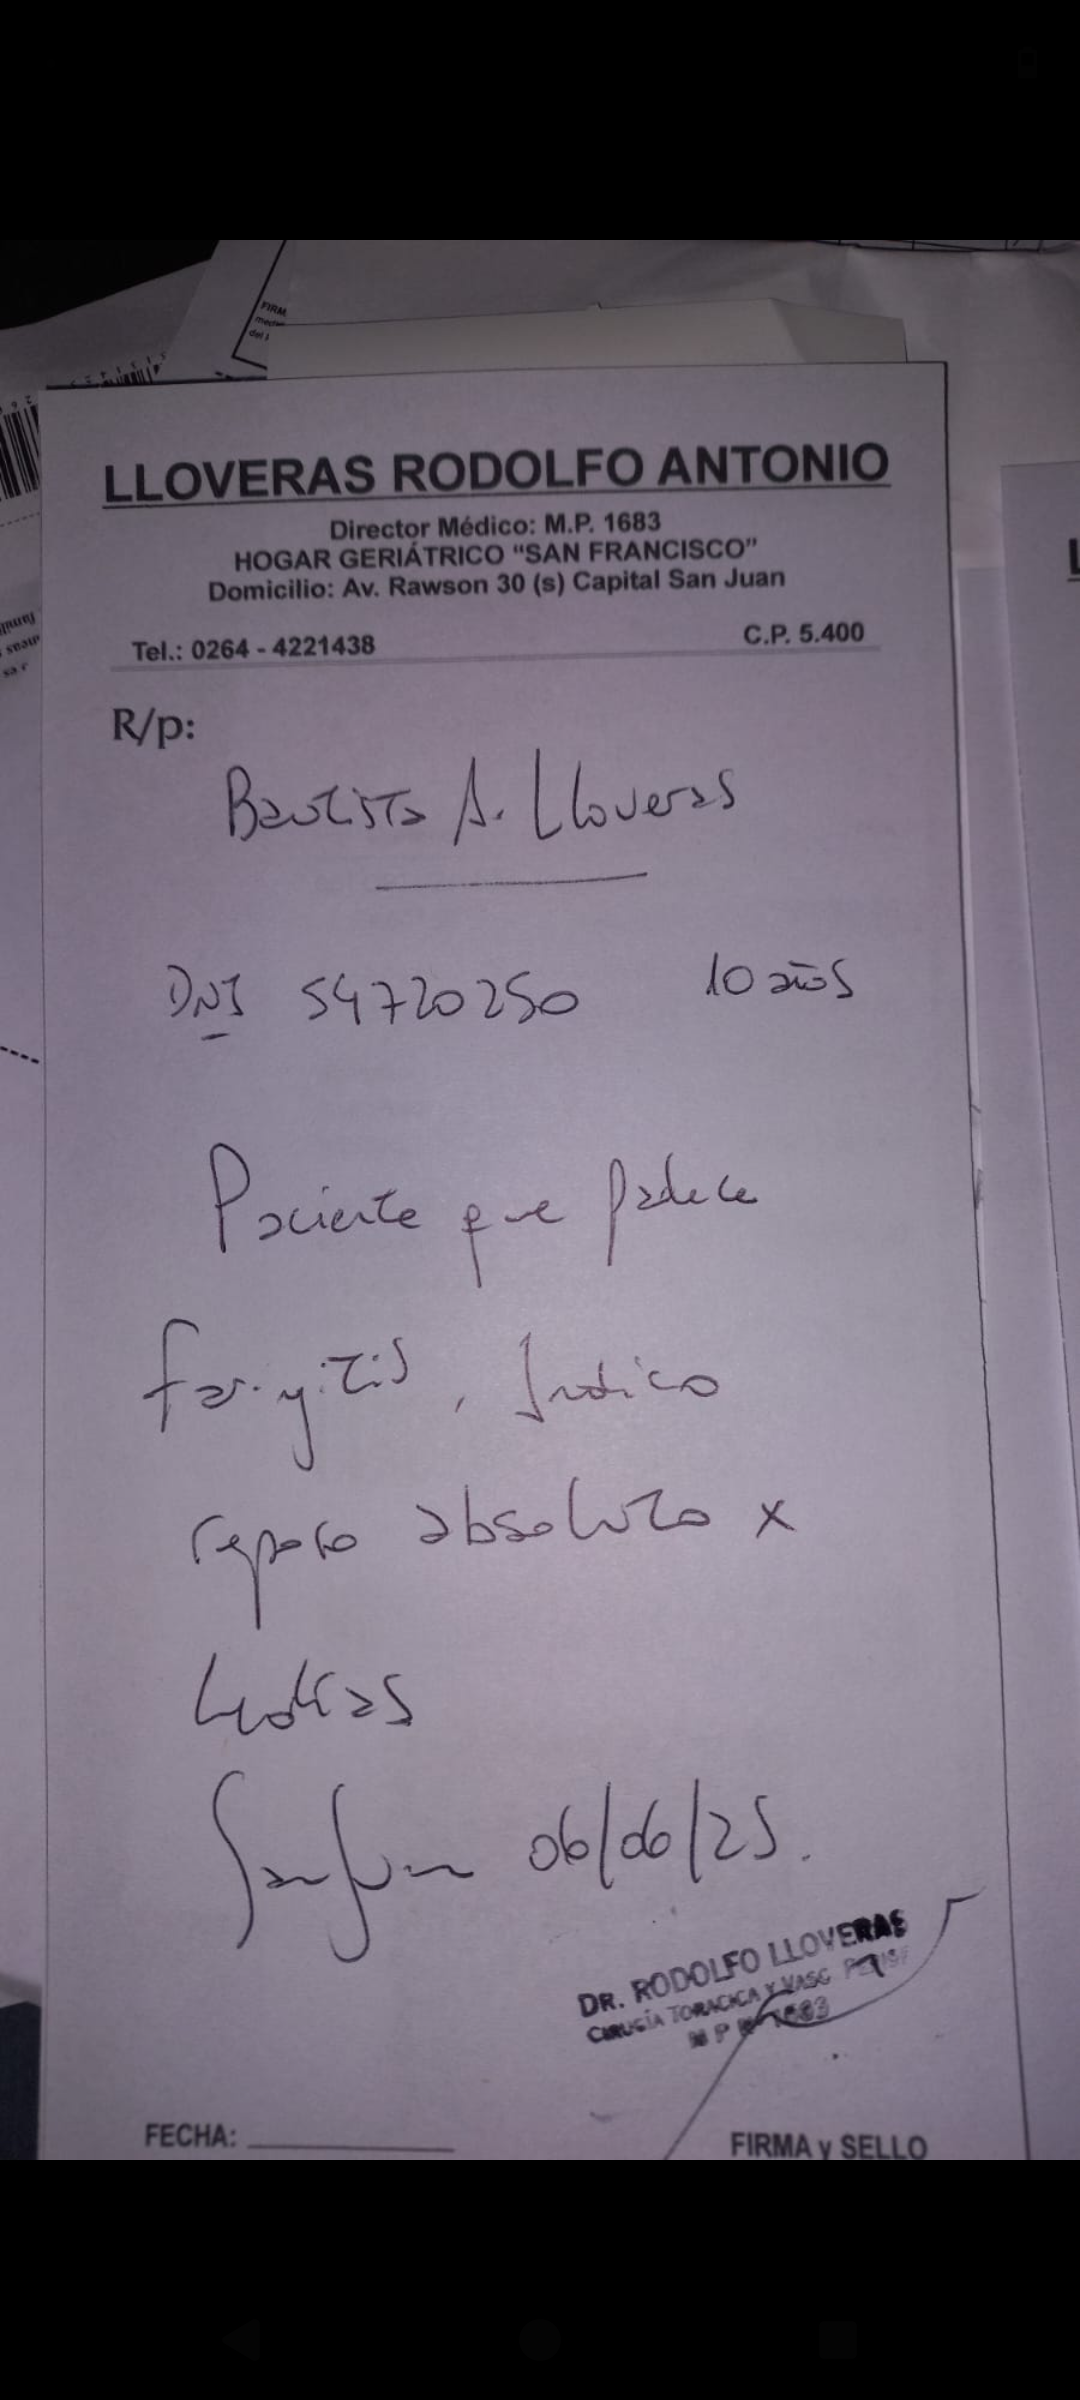 FIRM
LLOVERAS RODOLFO ANTONIO
Director Médico: M.P. 1683
HOGAR GERIÁTRICO “SAN FRANCISCO”
Domicilio: Av. Rawson 30 (s) Capital San Juan
Tel.: 0264 - 4221438 C.P. 5.400
R/p:
Bautista A. Lloveras
DNI 54720250 10 años
Paciente que padece
faringitis, Indico
reposo absoluto x
San Juan 06/06/25.
DR. RODOLFO LLOVERAS
CIRUGÍA TORACICA Y VASC
M P 1683
FECHA:
FIRMA y SELLO